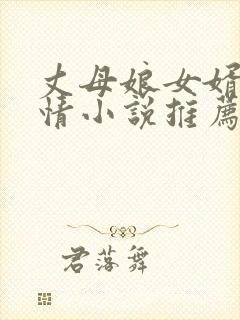 丈母娘女婿
情小説推薦
君落舞